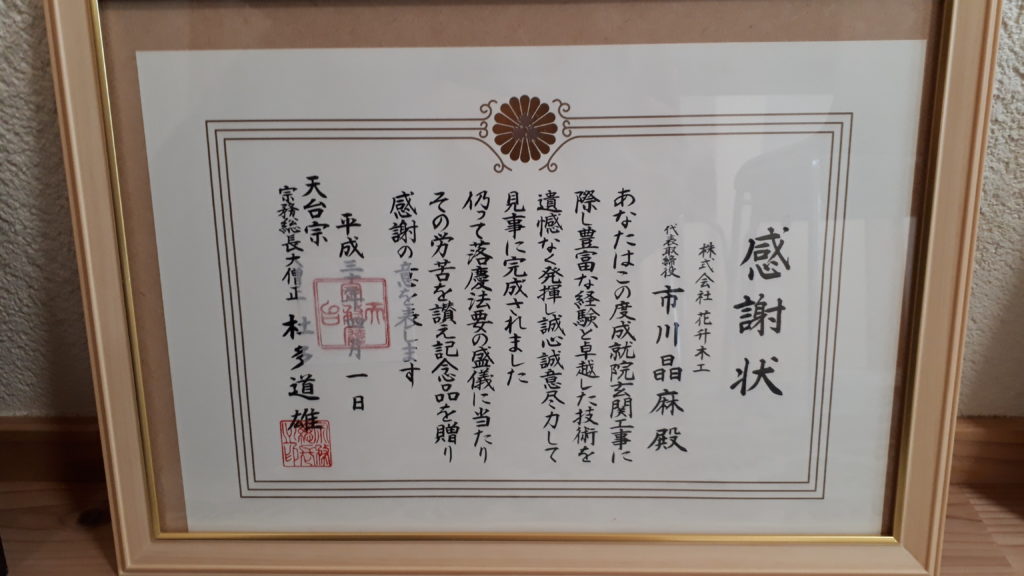 感謝状
株式会社 花升木工
代表取締役 市川晶麻 殿
あなたはこの度成就院玄関工事に
際し豊富な経験と卓越した技術を
遺憾なく発揮し誠心誠意尽力して
見事に完成されました
仍って落慶法要の盛儀に当たり
その労苦を讃え記念品を贈り
感謝の意を表します
平成三十年四月一日
天台宗
宗務総長大僧正 杜多道雄